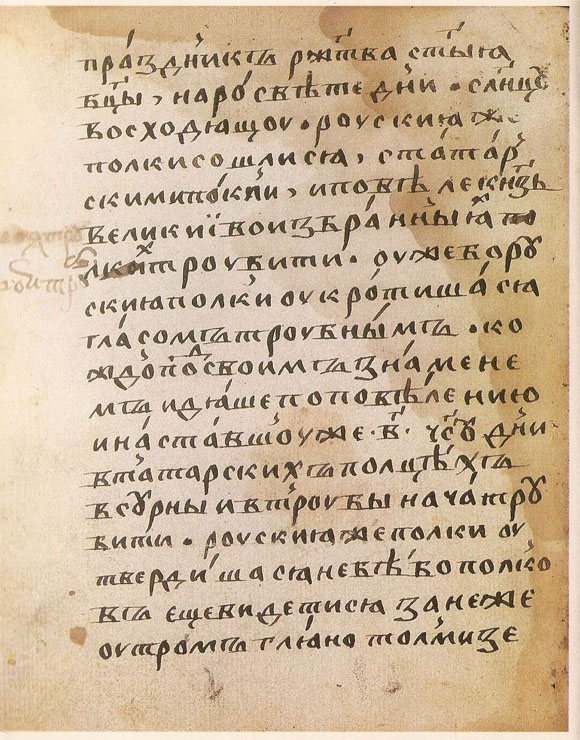 пра́здникъ ржⷭ҇тва ст҃ы́ѧ
бц҃ы, на ро́свѣте дн҃и. сл҃нцꙋ
восходѧщоу. роуски́ѧ же
полки сошлисѧ, с тата́р
скими по́лкѝ, и повѣле кнѧⷥь
великиї во избра́нныⷯ
полкаⷯ троубити. оуже во рꙋ
скиѧ полкѝ оукро́тиша́сѧ
гла́сомъ троубны́мъ. ко
ждо поⷣ свои́мъ зна́мене
мъ идѧ́ше по повѣле́нию
и наста́вшоу же .в҃. чс҃ꙋ дн҃и
в татарскихъ полцѣ́хъ
в сꙋрны и в троубы нача́ трꙋ
бити. роускиѧ же полки оу
тверди́шасѧ не вѣ бо полко́
въ еще видетисѧ зане́же
оутромъ глѧ́но толми́ зе